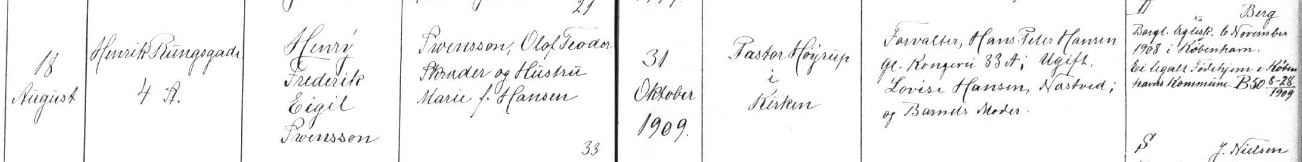 27
18
August
Henrik Rungsgade
4 A.
Henry
Frederik
Eigil
Svensson
Svensson, Olof Teodor
Skræder og Hustru
Marie f. Hansen
33
31
Oktober
1909.
Pastor Høyrup
i
Kirken
Forvalter, Hans Peter Hansen
Gl. Kongevei 33 A; Ugift.
Lovise Hansen, Næstved;
og Barnets Moder.
Berg
Borgl. Ægtesk. 6 November
1908 i København.
Ei legalt Fødehjem i Køben
havns Kommune. B 50 8-28/1909
J. Nielsen